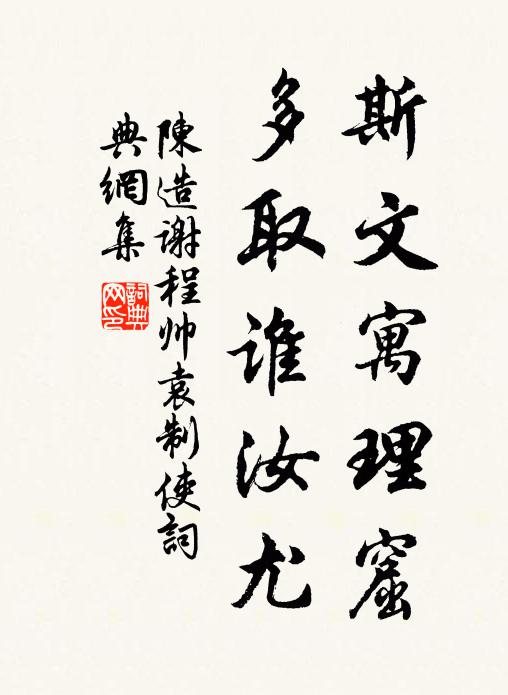 斯文寓理窟
多取谁汝尤
陳造谢程帅袁制使詞
典網集
詞典网印